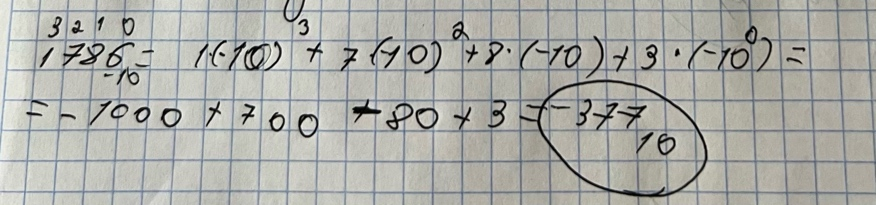 3 2 1 0
1786₋₁₀ = 1(-10)³ + 7(-10)² + 8·(-10) + 3·(-10⁰) =
= -1000 + 700 - 80 + 3 = -377₁₀